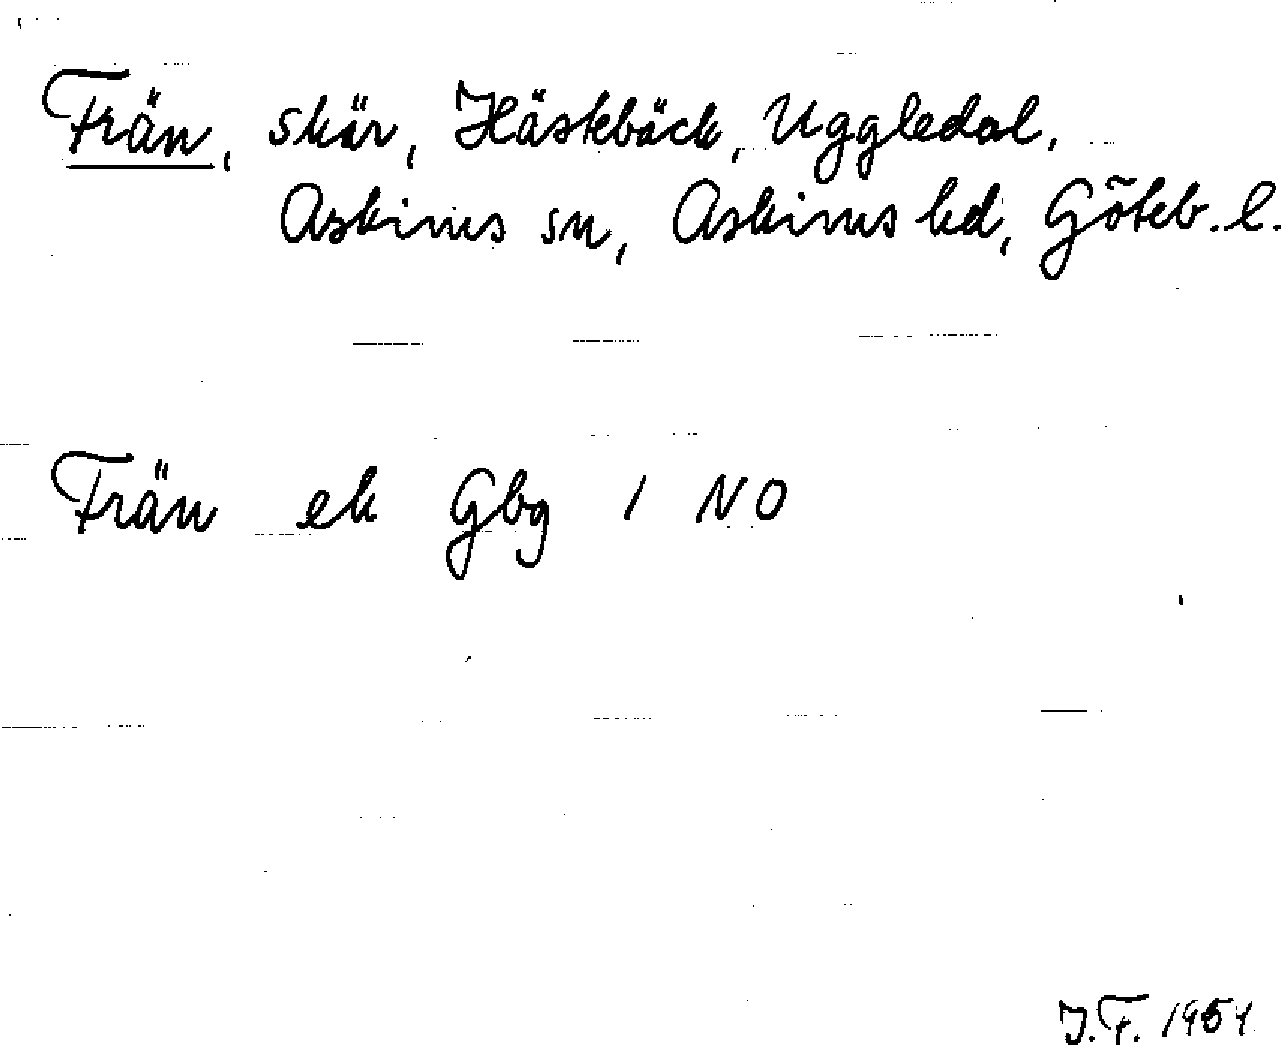 Från, skär, Hästebäck, Uggledal,
Askims sn, Askims hd, Göteb. l.
Från ek Gbg 1 NO
J.F. 1951